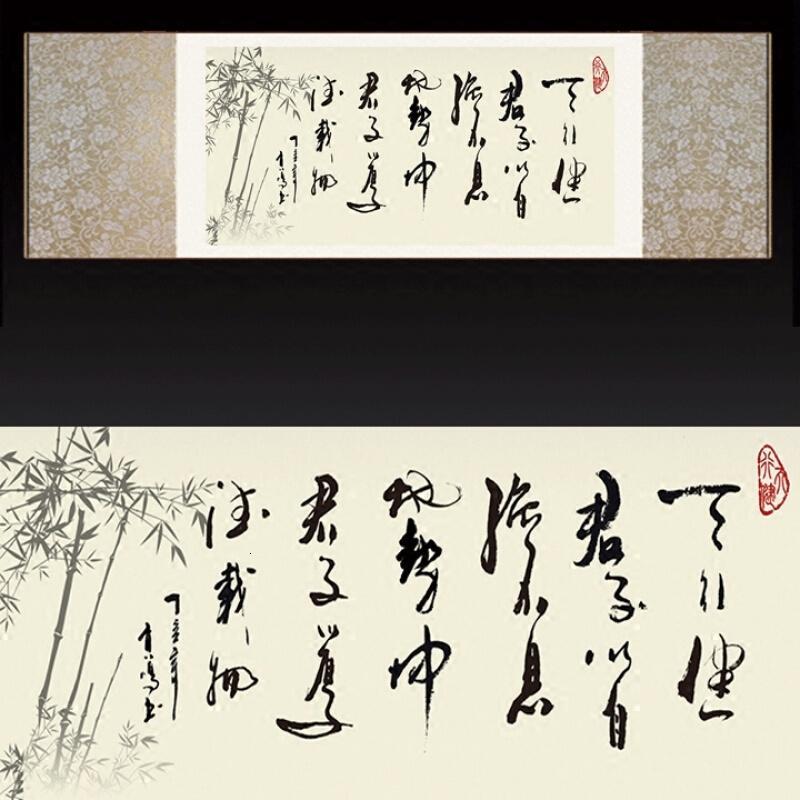 天行健
君子以自
強不息
地勢坤
君子以厚
德載物
丁亥年
天行健
天行健
君子以自
強不息
地勢坤
君子以厚
德載物
丁亥年